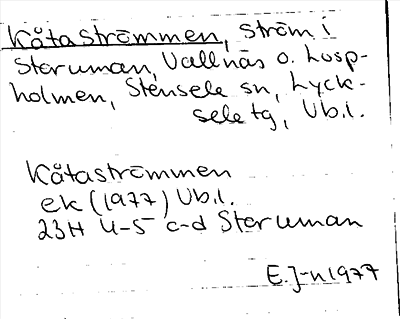 Kåtaströmmen, ström i
Storuman, Vallnäs o. Losp-
holmen, Stensele sn, Lyck-
sele tg, Vb.l.
Kåtaströmmen
ek (1977) Vb.l.
23H 4-5 c-d Storuman
E.J-n 1977